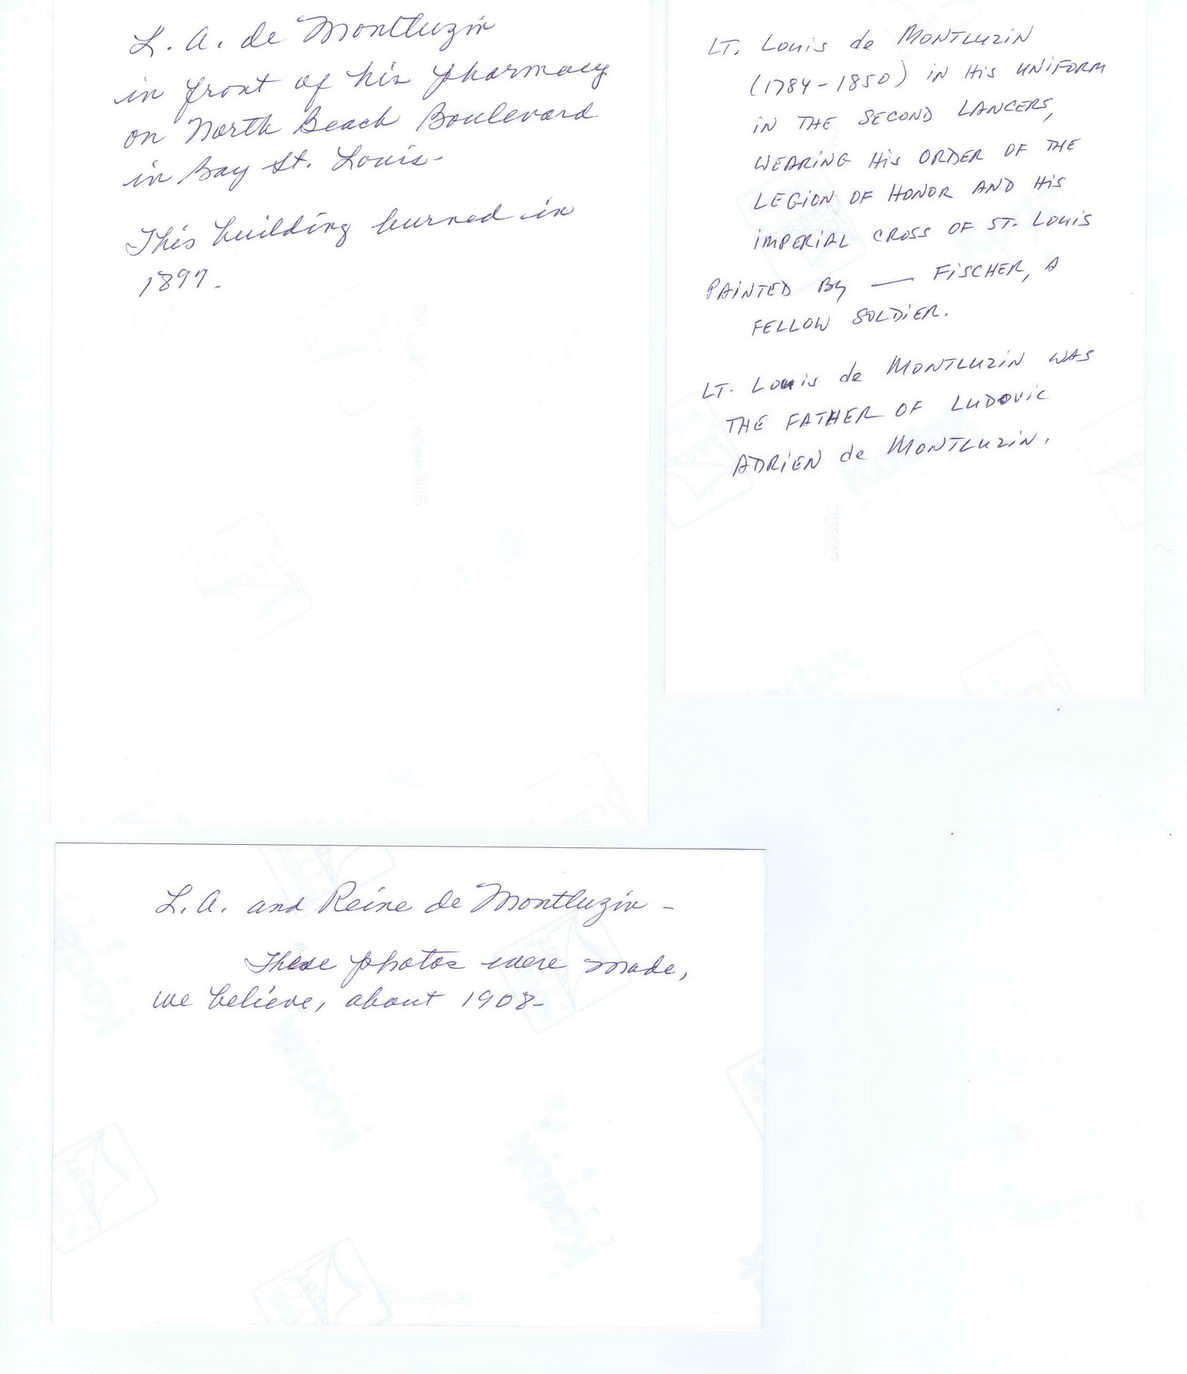 L. A. de Montluzin
in front of his pharmacy
on North Beach Boulevard
in Bay St. Louis-
This building burned in
1897.
LT. Louis de MONTLUZIN
(1784-1850) IN HIS UNIFORM
IN THE SECOND LANCERS,
WEARING HIS ORDER OF THE
LEGION OF HONOR AND HIS
IMPERIAL CROSS OF ST. LOUIS
PAINTED By — FISCHER, A
FELLOW SOLDIER.
LT. Louis de MONTLUZIN WAS
THE FATHER OF LUDOVIC
ADRIEN de MONTLUZIN.
L. A. and Reine de Montluzin -
These photos were made,
we believe, about 1908-
Kodak
Kodak
Kodak
Kodak